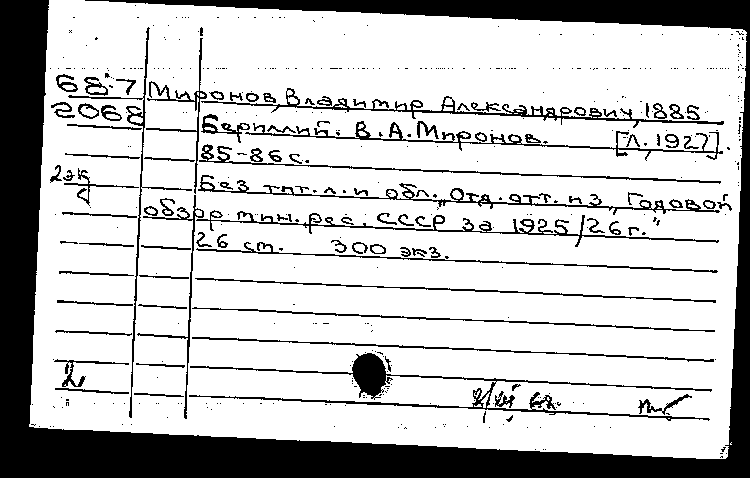 68-7 Миронов, Владимир Александрович, 1885
2068 Бериллий. В.А. Миронов. [Л., 1927].
85-86 с.
2 эк Без тит. л. и обл. Отд. отт. из „Годовой
обзор мин. рес. СССР за 1925/26 г.“
26 см. 300 экз.
2